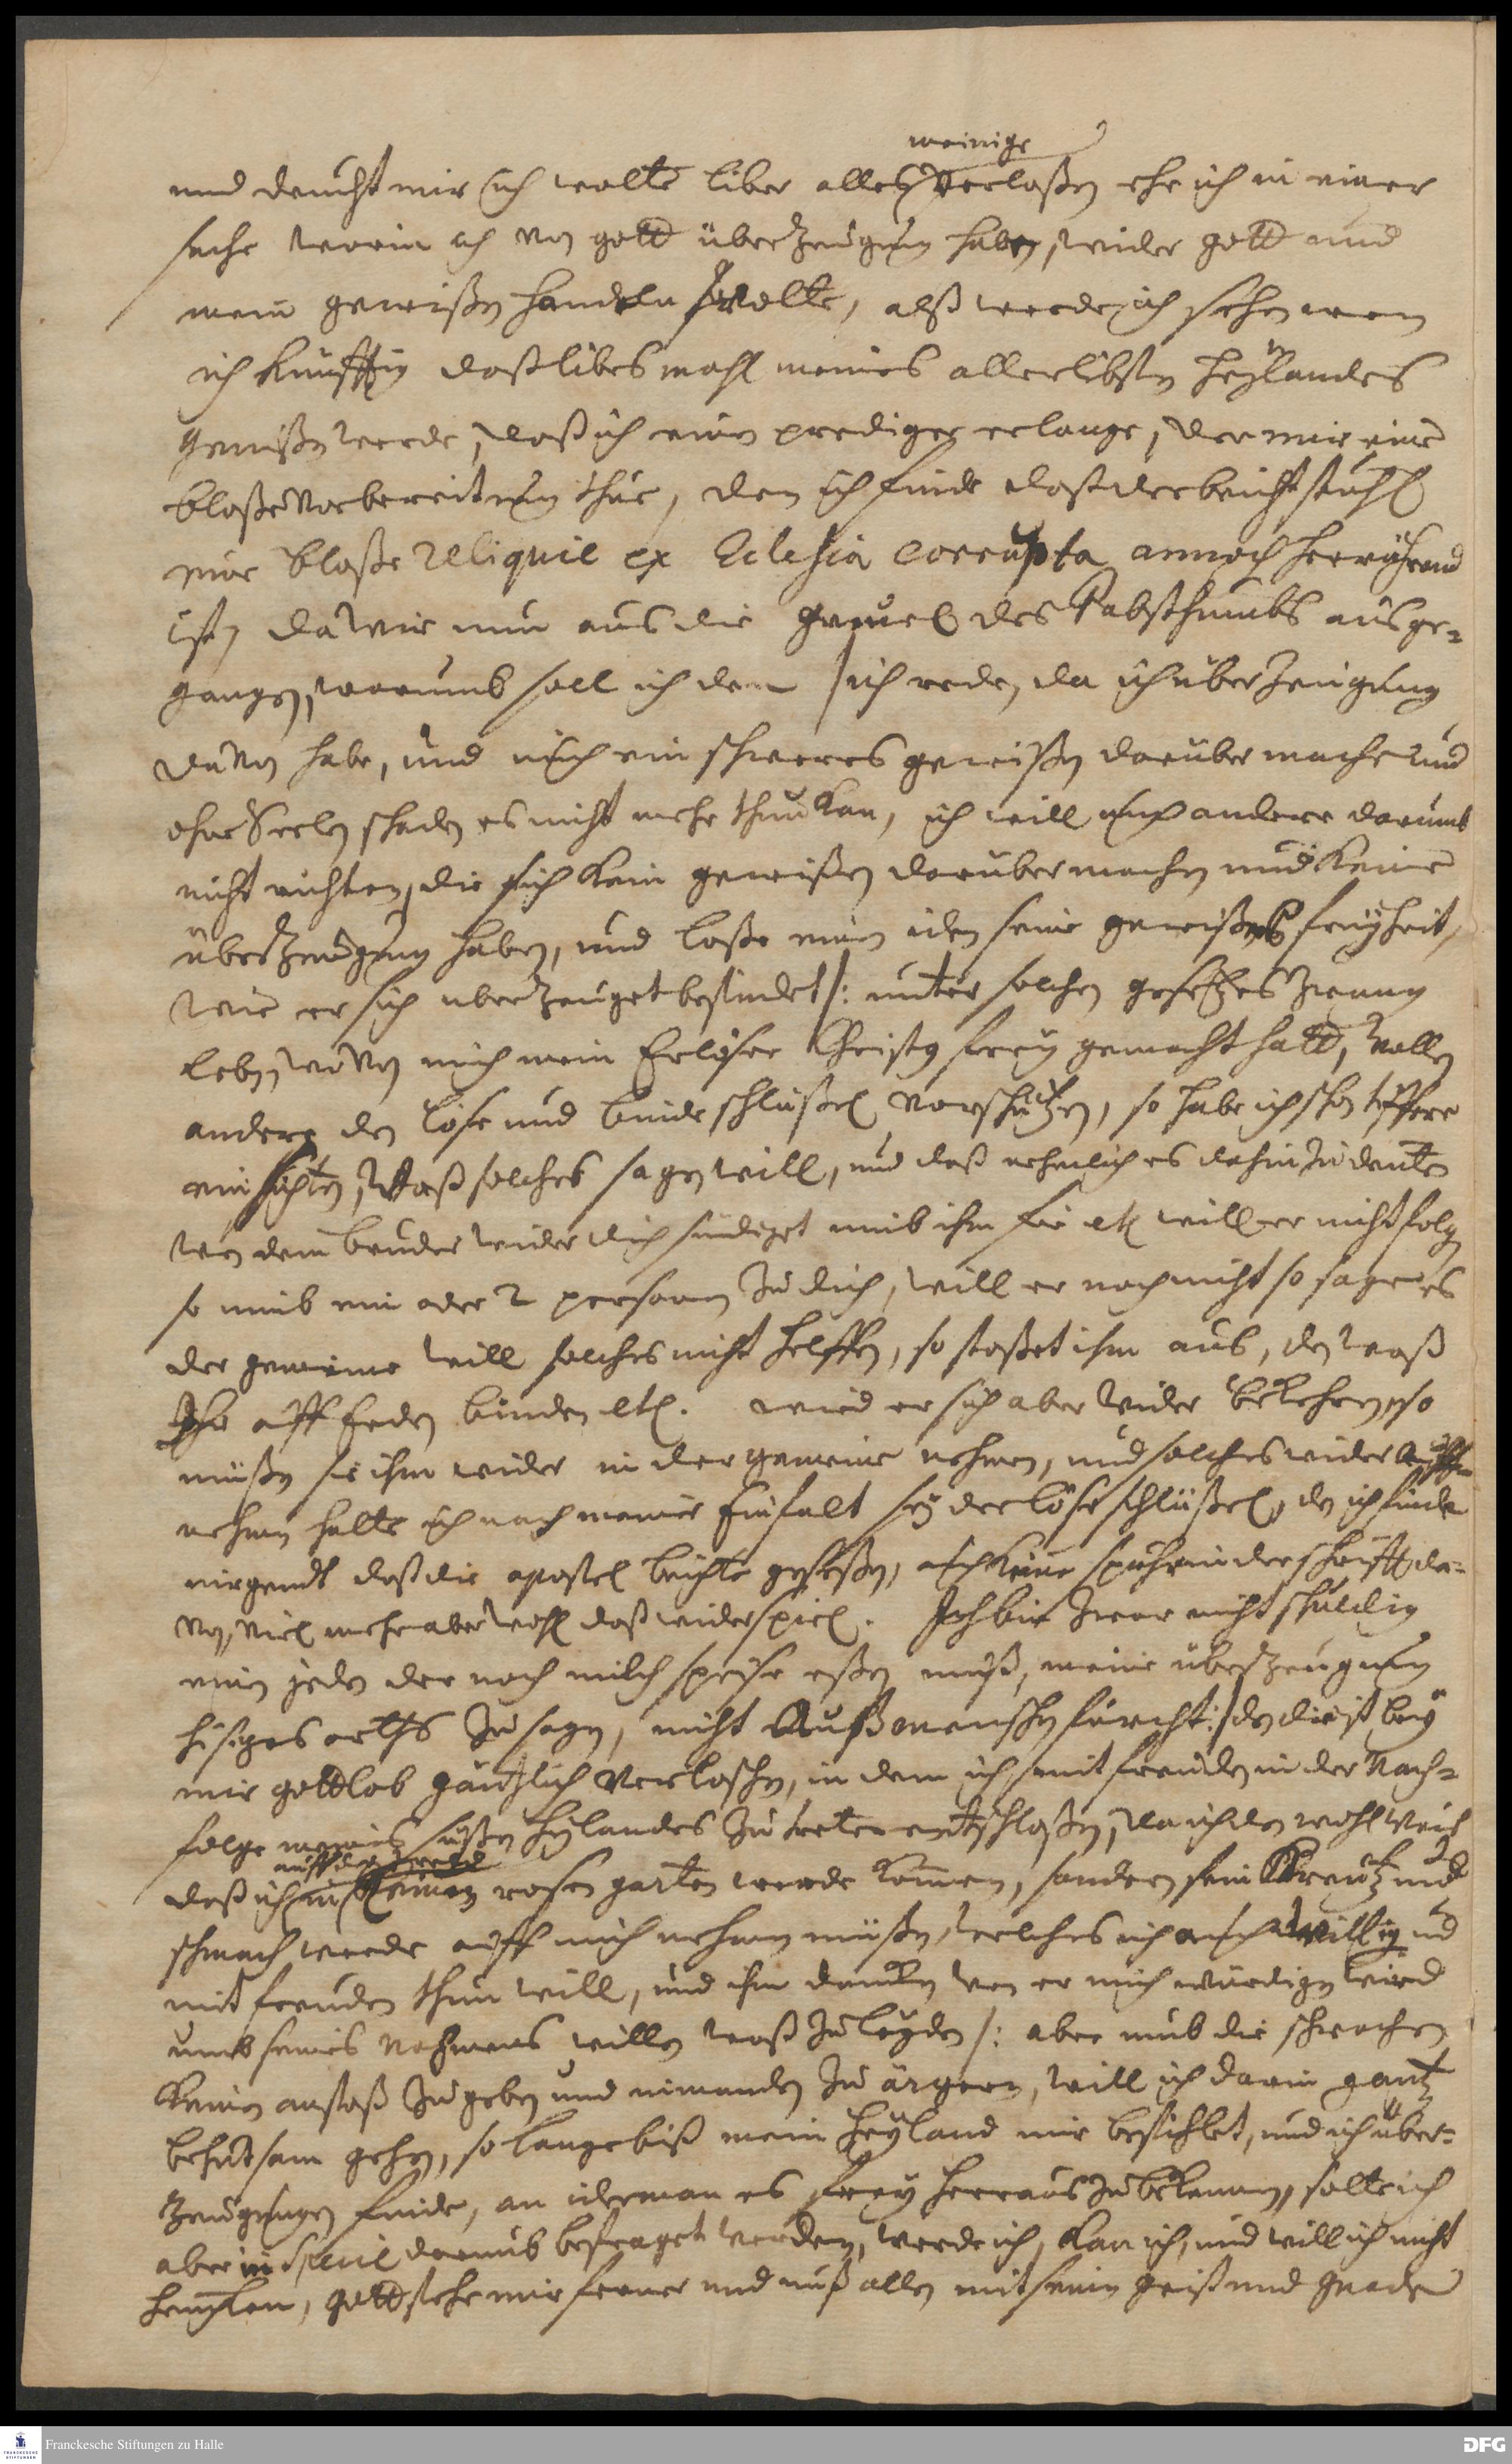 meinige
und deucht mir ich wolte liber alles verlaßen ehe ich in einer
sache worin ich von gott überzeugung habe, wider gott und
mein gewißen handeln solte, alß werde ich sehen wen
ich künfftig daß libes mahl meines allerlibsten heylandes
genißen werde, daß ich einen prediger erlange, der mir eine
bloße vorbereitung thue, den ich finde daß der beicht stuhl
nur bloße reliquie ex Eclesia corrupta annoch herrührend
ist, da wir nun aus die greuel des Pabsthumbs ausge-
gangen, warumb soll ich den / ich rede, da ich überzeugung
davon habe, und mich ein schweres gewißen darüber mache und
ohne Seelen schaden es nicht mehr thun kan, ich will auch andere darumb
nicht richten, die sich kein gewißen darüber machen und keine
überzeugung haben, und laße einen iden seine gewißens freyheit,
wie er sich uberzeuget befindet /: unter solchen gesetzes zwang
leben, wovon mich mein Erlöser Christus frey gemacht hatt, wollen
andere den löse und binde schlüßel vorschützen, so habe ich schon tieffere
einsichten, waß solches sagen will, und daß nehmlich es dahin zu deuten
wen dein bruder wider dich sündiget nimb ihm für etc will er nicht folgen
so nimb ein oder 2 personen zu dich, will er noch nicht so sage es
der gemeine will solches nicht helffen, so stoßet ihm aus, den waß
Ihr auff Erden binden etc. wird er sich aber wider bekehren, so
müßen sie ihm wider in der gemeine nehmen, und solches wider auff
nehmen halte ich nach meiner Einfalt sey der löse schlüßel, den ich finde
nirgendt daß die apostel beichte geseßen, auch keine spuhr in der schrifft da-
von, viel mehr aber wohl daß widerspiel. Ich bin zwar nicht schuldig
einen jeden der noch milch speise eßen muß, meine überzeugung
hisiges orths zu sagen, nicht auß menschen furcht :/ den die ist bey
mir gottlob gäntzlich verloschen, in dem ich mit freuden in der Nach-
folge meines süßen heylandes zu treten entschloßen, da ich den wohl weiß
auff der Welt
daß ich in keinen rosen garten werde kommen, sondern sein Kreutz und
schmach werde auff mich nehmen müßen, welches ich auch willig und
mit freuden thun will, und ihm dancken wen er mich würdigen wird
umb seines Nahmens willen waß zu leyden /: aber umb die schwachen
keinen anstoß zu geben und nimanden zu ärgern, will ich darin gantz
behutsam gehen, so lange biß mein heyland mir befichlet, und ich über-
zeugungen finde, an iderman es frey herraus zu bekennen, solte ich
aber in Specie darumb befraget werden, werde ich, kan ich, und will ich nicht
heucheln, Gott stehe mir ferner und unß allen mit seinen geist und gnade
Franckesche Stiftungen zu Halle
DFG